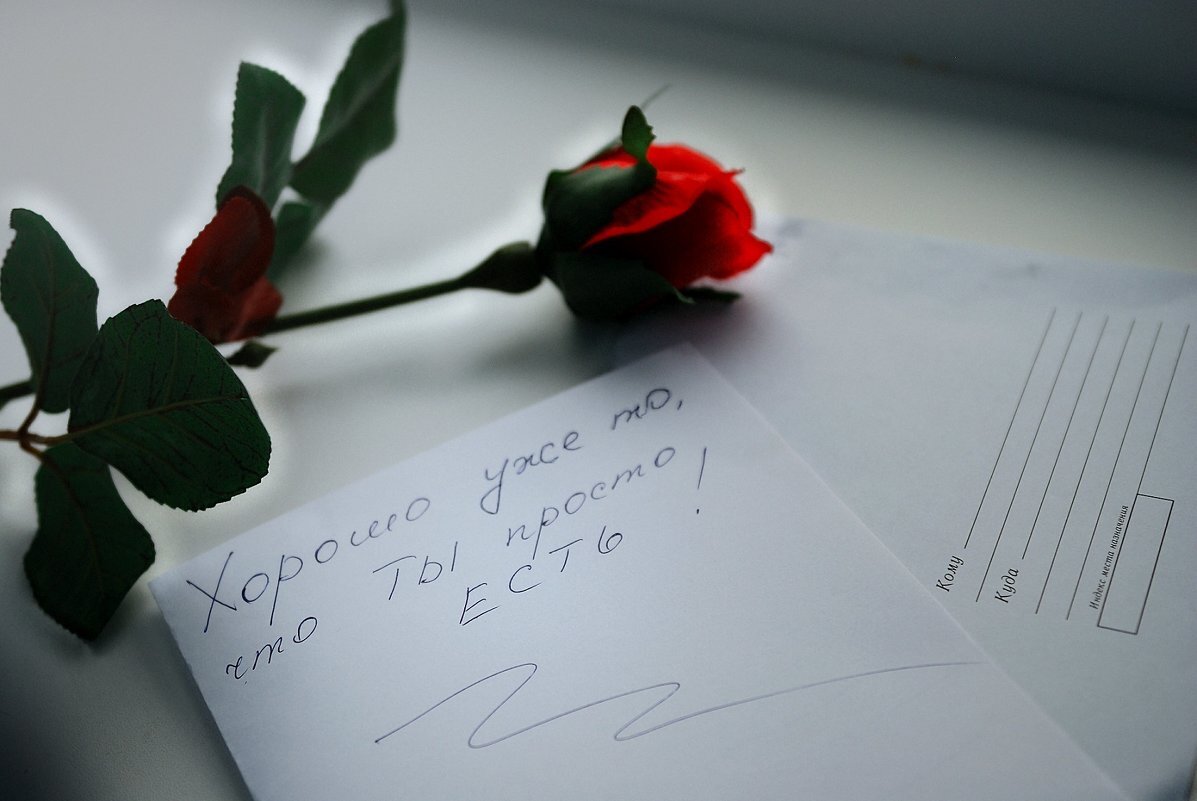 Хорошо уже то,
что ТЫ просто
ЕСТЬ!
Кому
Куда
Индекс места назначения